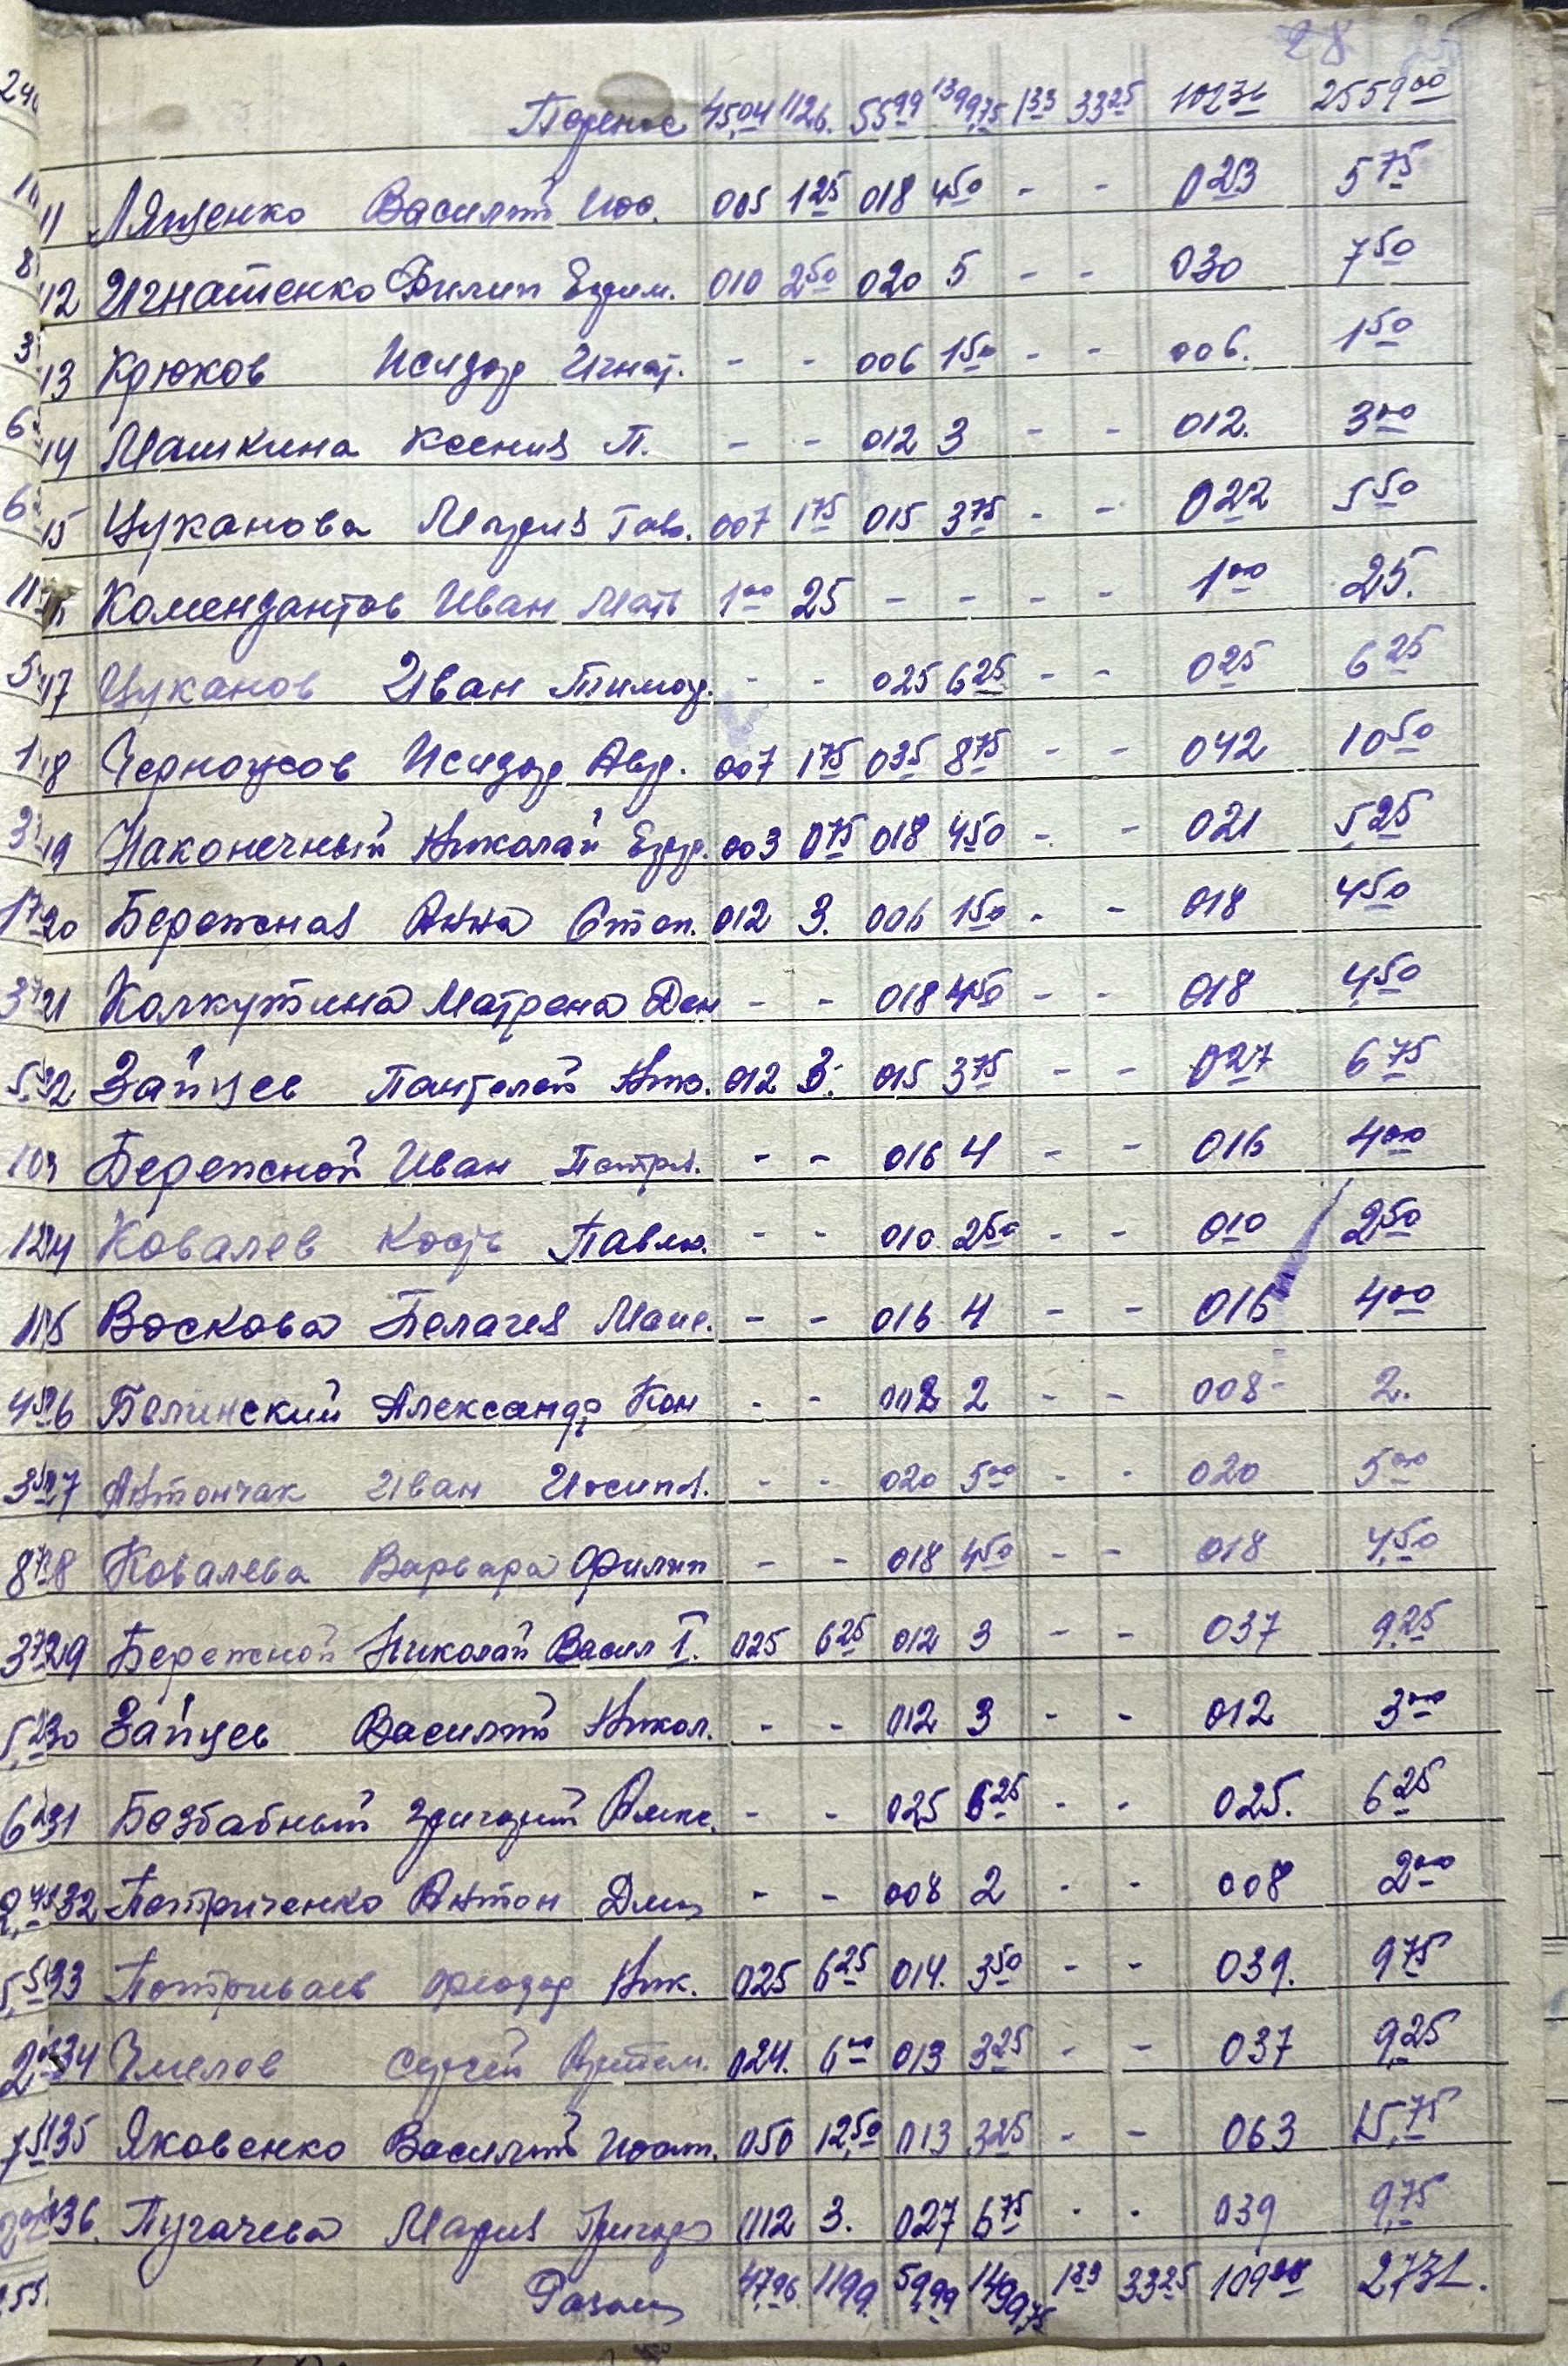 28
Перенос 45,04 1126. 55,99 1399,75 1,33 33,25 102,36 2559,00
11 Лященко Василий Иос. 005 1,25 018 4,50 - - 0,23 5,75
12 Игнатенко Филип Ефим. 010 2,50 020 5 - - 030 7,50
13 Крюков Исидор Игнат. - - 006 1,50 - - 006. 1,50
14 Машкина Ксения П. - - 012 3 - - 012. 3,00
15 Цуканова Мария Гав. 007 1,75 015 3,75 - - 0,22 5,50
Комендантов Иван Мат 1,00 25 - - - - 1,00 25.
17 Цуканов Иван Тимоф. - - 025 6,25 - - 025 6,25
18 Черноусов Исидор Авр. 007 1,75 035 8,75 - - 042 10,50
19 Наконечный Николай 003 0,75 018 4,50 - - 021 5,25
20 Бережная Анна Степ. 012 3. 006 1,50 - - 018 4,50
21 Колкутина Матрена Дем - - 018 4,50 - - 018 4,50
Зайцев Пантелей Ник. 012 3. 015 3,75 - - 027 6,75
Бережной Иван Петри. - - 016 4 - - 016 4,00
Ковалев Кость Павло. - - 010 2,50 - - 010 2,50
Воскова Пелагея - - 016 4 - - 016 4,00
Белинский Александр Кон - - 008 2 - - 008 2.
Антончак Иван Иосип. - - 020 5,00 - - 020 5,00
Ковалева Варвара Филип - - 018 4,50 - - 018 4,50
29 Бережной Николай Васил I. 025 6,25 012 3 - - 037 9,25
30 Зайцев Василий Никол. - - 012 3 - - 012 3,00
31 Безбабный Григорий Алекс. - - 025 6,25 - - 025. 6,25
132 Петриченко Антон Дми - - 008 2 - - 008 2,00
133 Федор Ник. 025 6,25 014. 3,50 - - 039. 9,75
134 Чмелев Сергей Артем. 024. 6,00 013 3,25 - - 037 9,25
135 Яковенко Василий 050 12,50 013 3,25 - - 063 15,75
136. Пугачева Мария Григор 012 3. 027 6,75 - - 039 9,75
47,96 1199. 59,99 1499,75 1,33 33,25 2732.